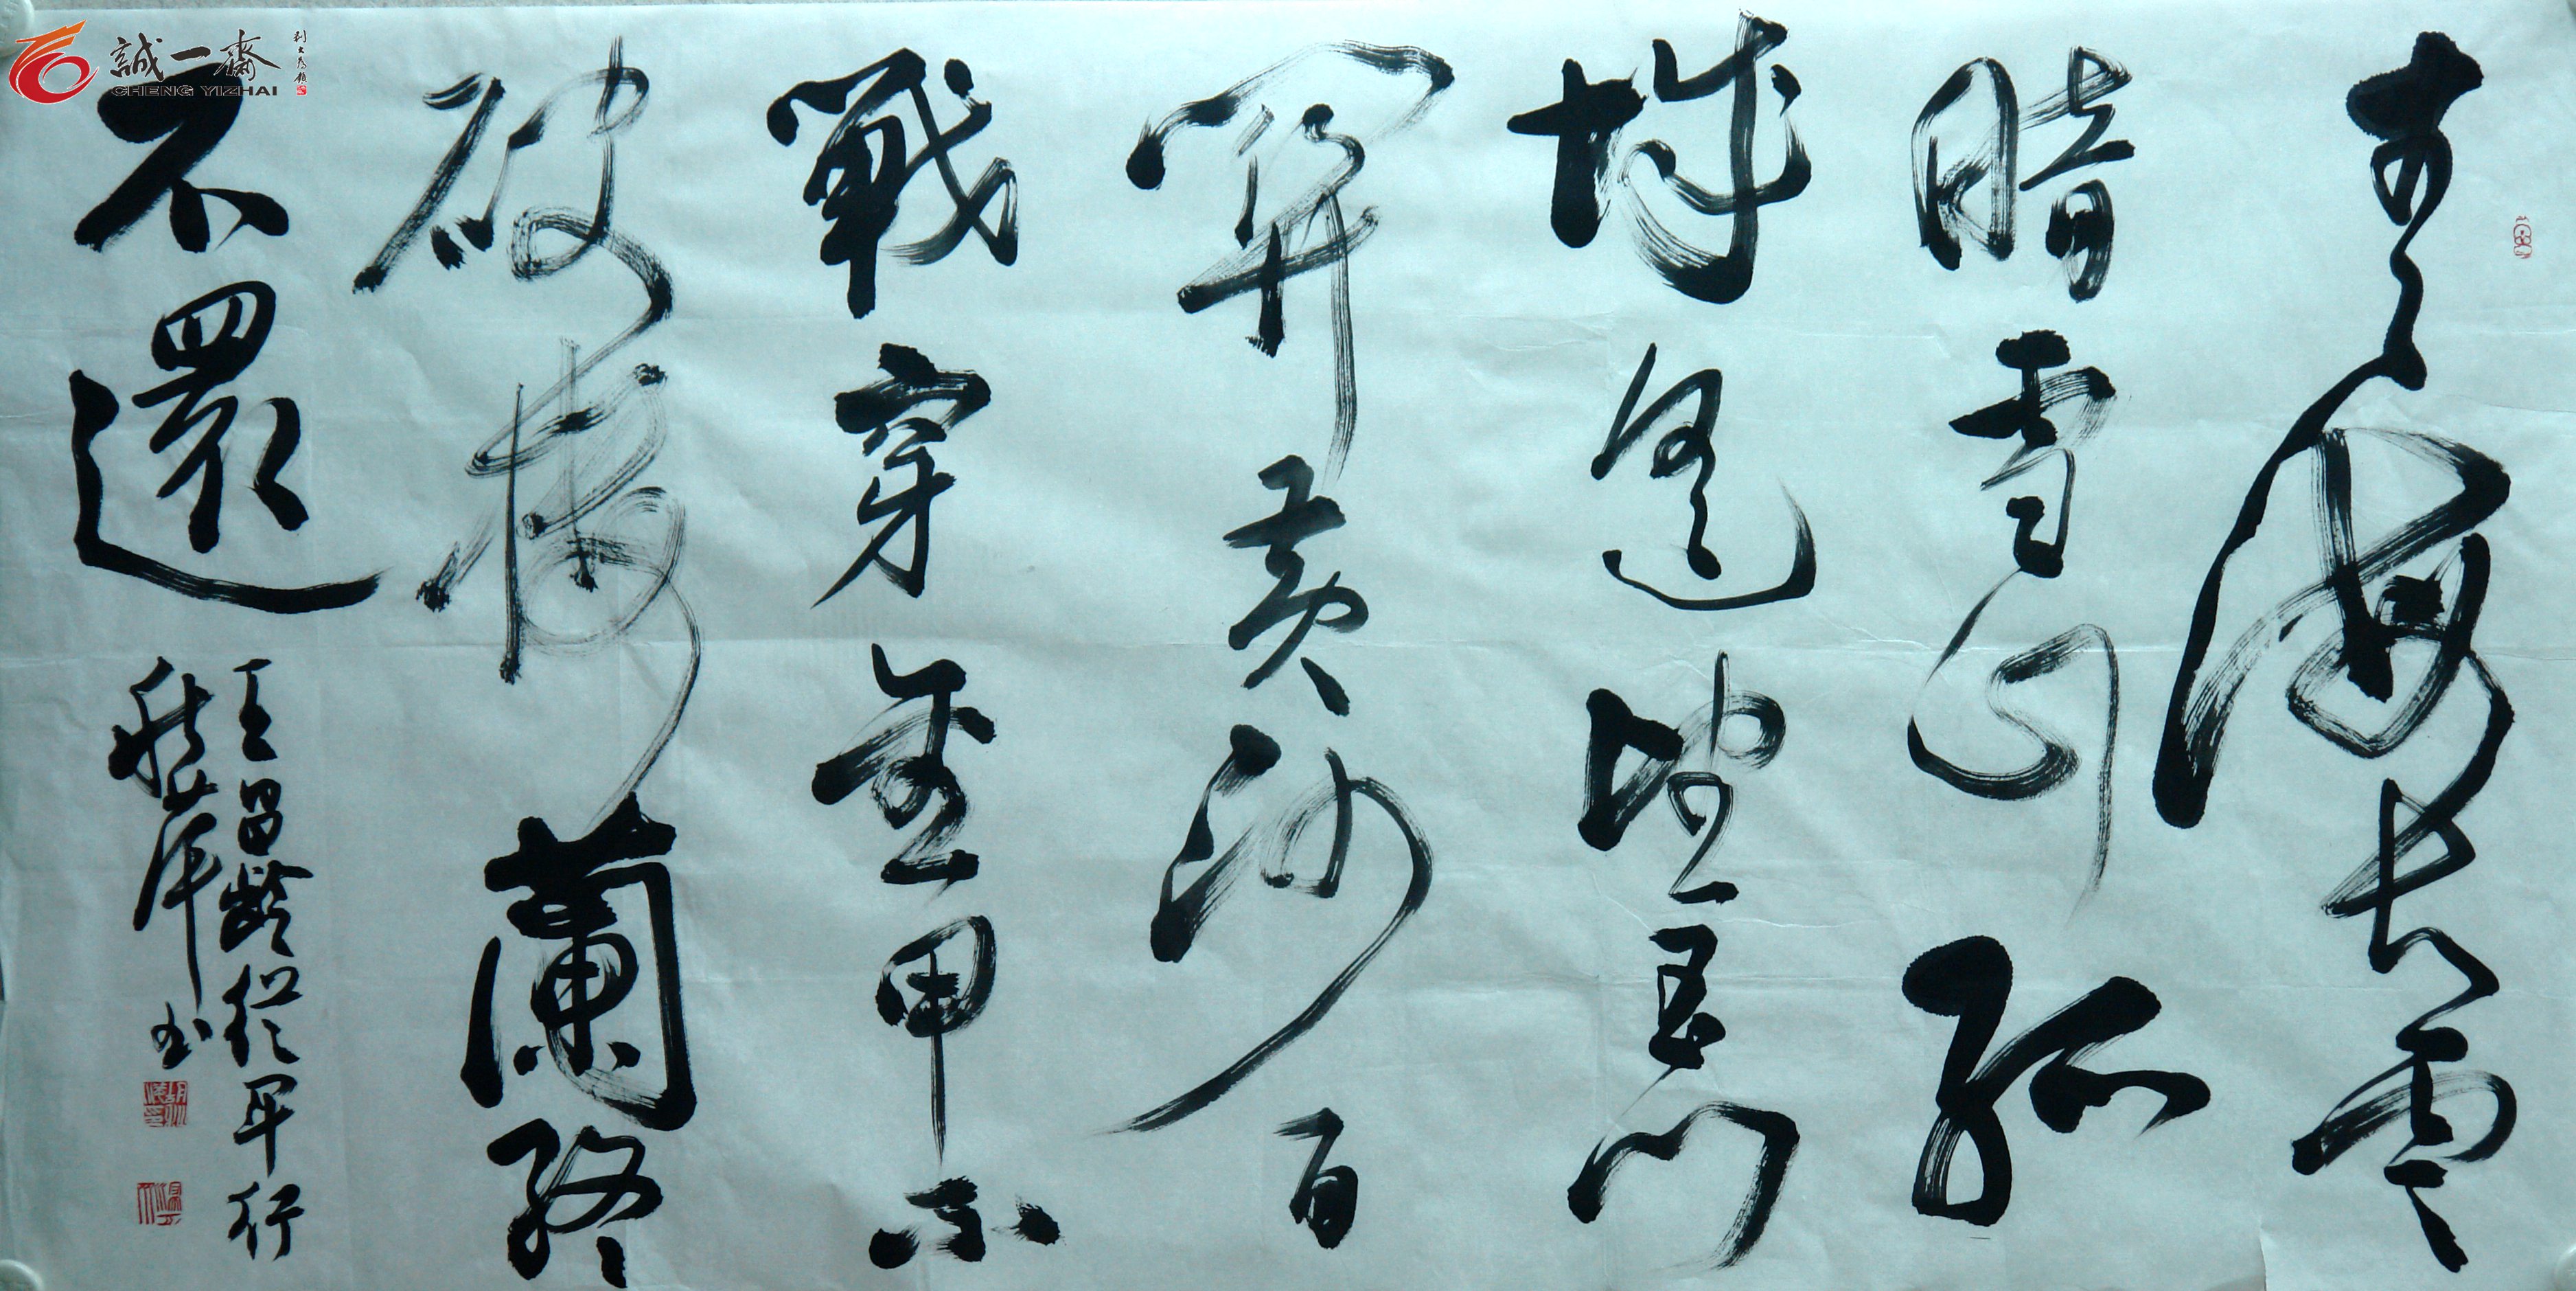 青海長雲
暗雪山孤
城遥望玉門
關黃沙百
戰穿金甲不
破樓蘭終
不還
王昌齡從軍行
書
誠一齋
CHENG YIZHAI